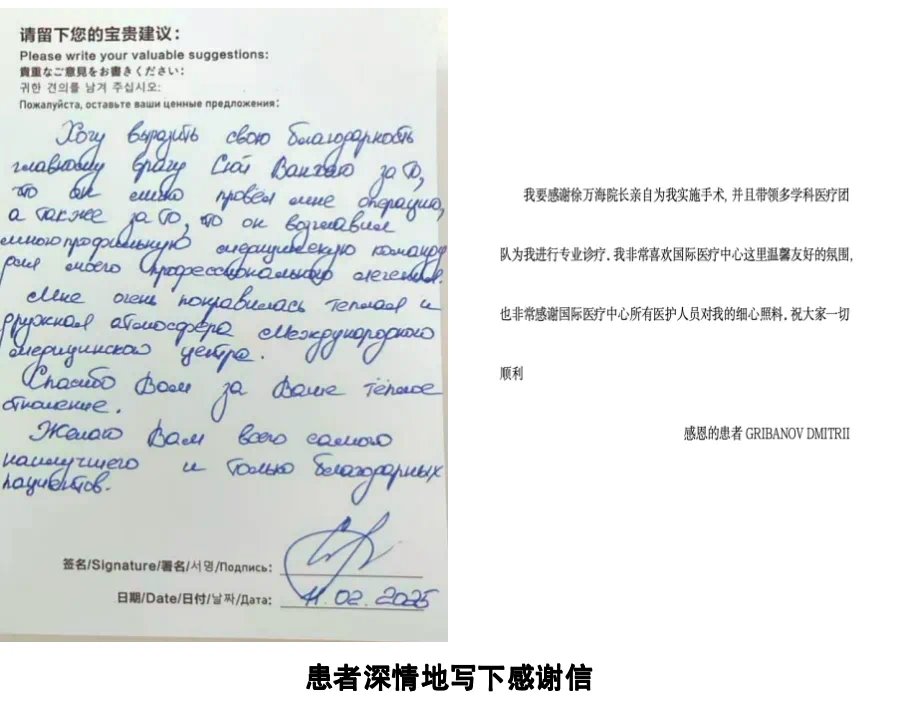 请留下您的宝贵建议：
Please write your valuable suggestions:
貴重なご意見をお書きください：
귀한 견의를 남겨 주십시오:
Пожалуйста, оставьте ваши ценные предложения:
Хочу выразить свою благодарность
главному врачу Сюй Ванхаю за то,
что он лично провёл мне операцию,
а также за то, что он возглавил
многопрофильную медицинскую команду
для моего профессионального лечения.
Мне очень понравилась теплая и
дружная атмосфера Международного
медицинского центра.
Спасибо Вам за Ваше тёплое
отношение.
Желаю Вам всего самого
наилучшего и только благодарных
пациентов.
签名/Signature/署名/서명/Подпись:
日期/Date/日付/날짜/Дата: 11.02.2025
我要感谢徐万海院长亲自为我实施手术, 并且带领多学科医疗团
队为我进行专业诊疗. 我非常喜欢国际医疗中心这里温馨友好的氛围,
也非常感谢国际医疗中心所有医护人员对我的细心照料. 祝大家一切
顺利
感恩的患者 GRIBANOV DMITRII
患者深情地写下感谢信